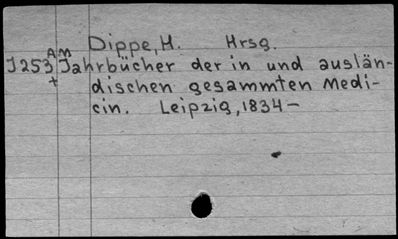 Dippe, H. Hrsg.
Am
J253 Jahrbücher der in und auslän-
+
dischen gesammten Medi-
cin. Leipzig, 1834-